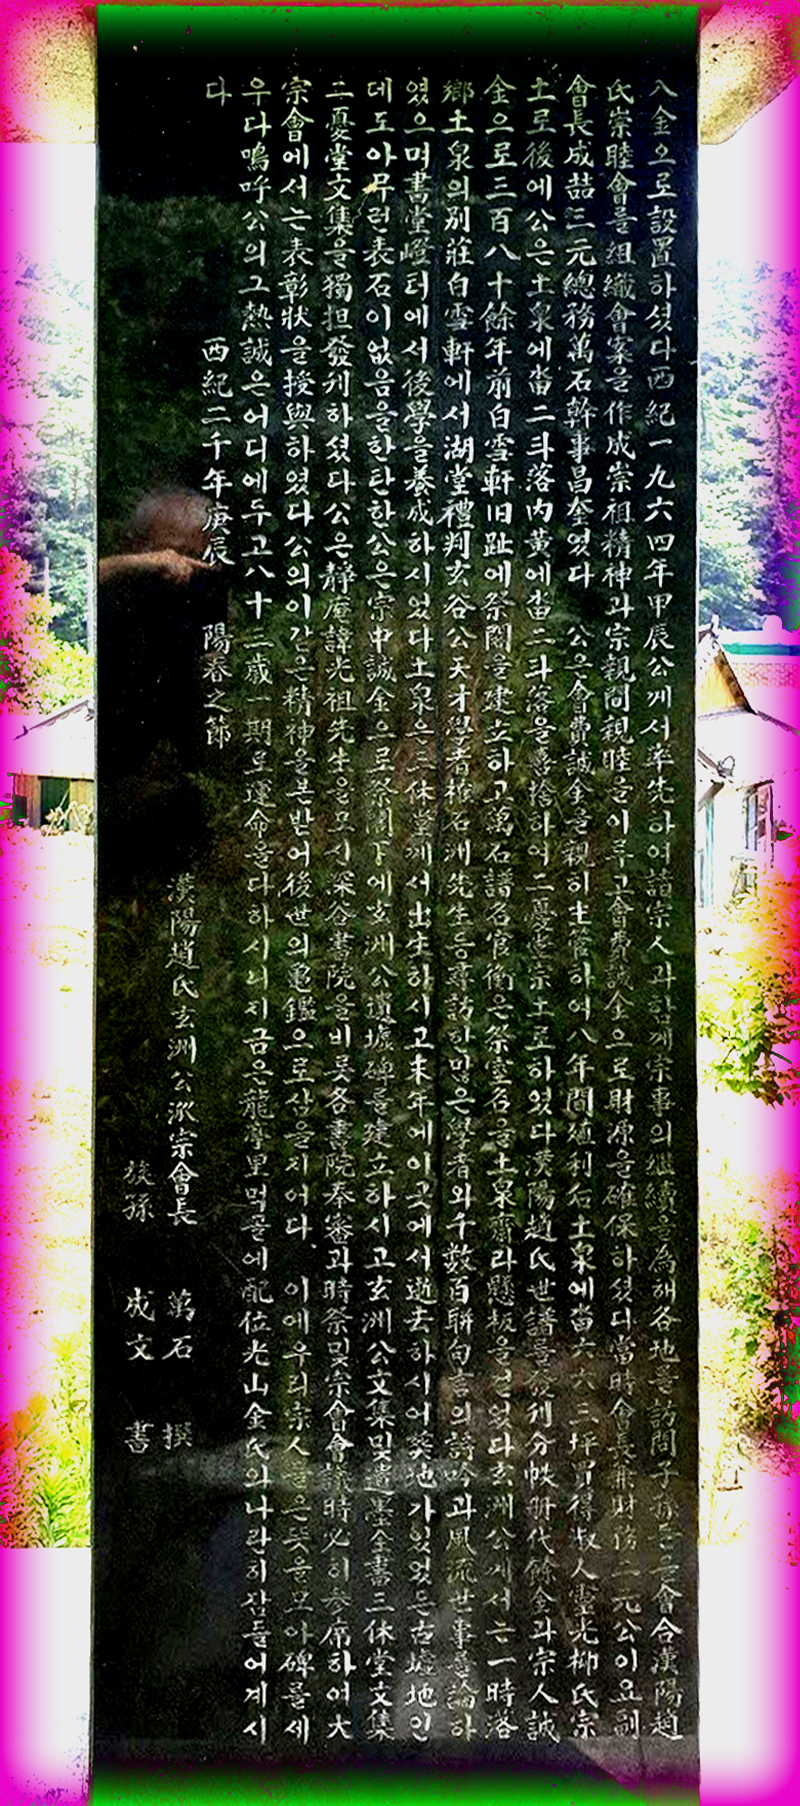 入金으로設置하셨다西紀一九六四年甲辰公께서率先하여諸宗人과함께宗事의繼續을爲해各地를訪問子孫들을會合漢陽趙
氏崇睦會를組織會案을作成崇祖精神과宗親間親睦을이루고會費誠金으로財源을確保하셨다當時會長兼財務二元公이요副
會長成喆三元總務萬石幹事昌奎였다 公은會費誠金을親히主管하여八年間殖利后土泉에畓六六三坪買得淑人靈光柳氏宗
土로後에公은土泉에畓二斗落內黃에畓二斗落을喜捨하여二憂堂宗土로하였다漢陽趙氏世譜를發刊分帙冊代餘金과宗人誠
金으로三百八十餘年前白雪軒旧趾에祭閣을建立하고萬石譜名官銜은祭室名을土泉齋라懸板을걸었다玄洲公께서는一時落
鄕土泉의別莊白雪軒에서湖堂禮判玄谷公天才學者權石洲先生等尋訪한많은學者와千數百聯句言의詩吟과風流世事를論하
였으며書堂嶝터에서後學을養成하시었다土泉은三休堂께서出生하시고末年에이곳에서逝去하시어葬地가있었든古墟地인
데도아무런表石이없음을한탄한公은宗中誠金으로祭閣下에玄洲公遺墟碑를建立하시고玄洲公文集및遺墨全書三休堂文集
二憂堂文集을獨担發刊하셨다公은靜庵諱光祖先生을모신深谷書院을비롯各書院奉審과時祭및宗會會議時必히參席하여大
宗會에서는表彰狀을授與하였다公의이같은精神을본받어後世의龜鑑으로삼을지어다. 이에우리宗人들은뜻을모아碑를세
우다嗚呼公의그熱誠은어디에두고八十三歲一期로運命을다하시니지금은龍 里먹골에配位光山金氏와나란히잠들어계시
다
西紀二千年庚辰 陽春之節
漢陽趙氏玄洲公派宗會長 萬石 撰
族孫 成文 書